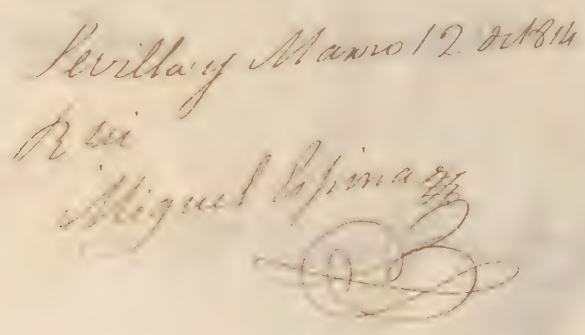 Sevilla y Marzo 12 de 1814
Miguel Espinazz